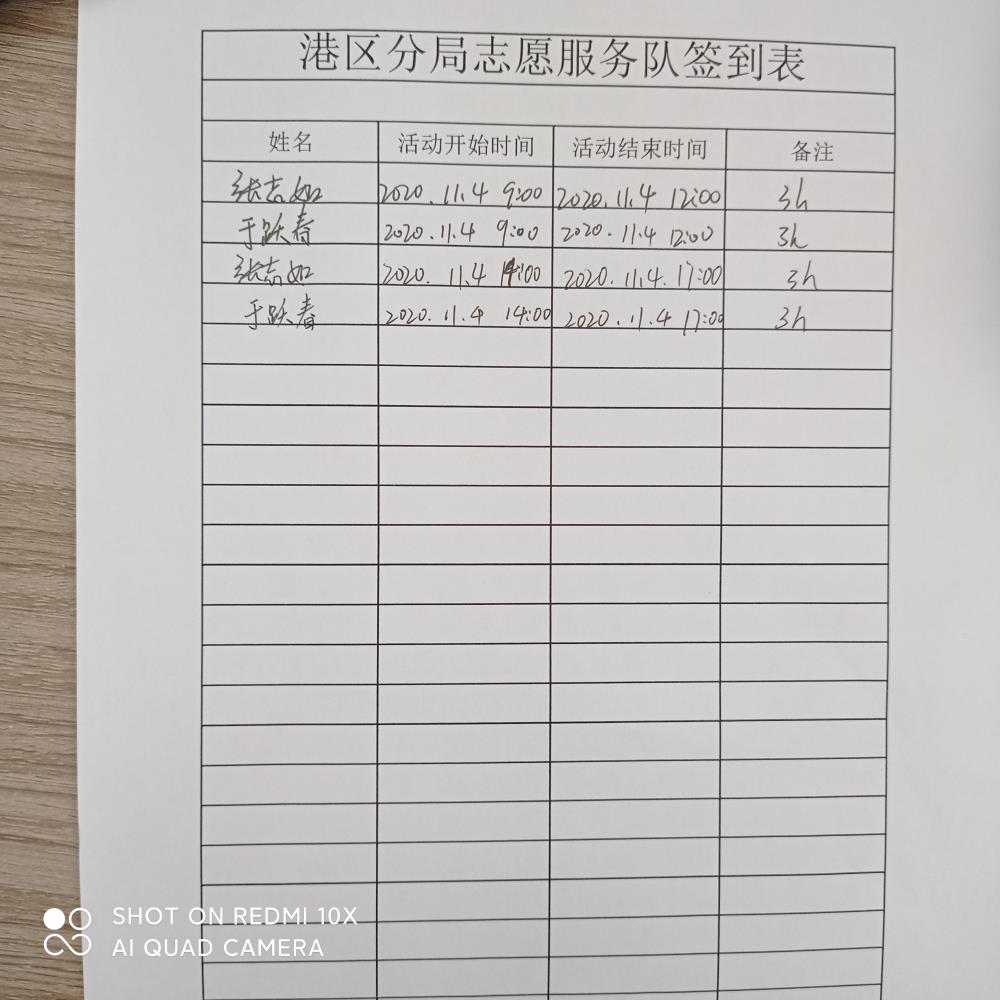 港区分局志愿服务队签到表
姓名 活动开始时间 活动结束时间 备注
张志如 2020.11.4 9:00 2020.11.4 12:00 3h
于跃春 2020.11.4 9:00 2020.11.4 12:00 3h
张志如 2020.11.4 14:00 2020.11.4.17:00 3h
于跃春 2020.11.4 14:00 2020.11.4 17:00 3h
SHOT ON REDMI 10X
AI QUAD CAMERA